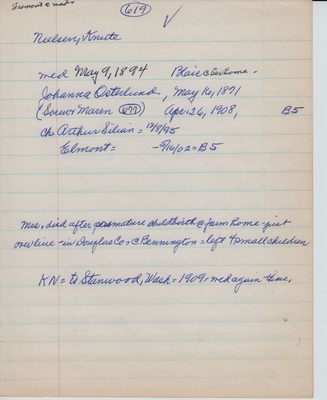 Fremont & nebr
619
Nielsen, Knute
med May 9, 1894 Blair @ her home.
Johanna Osterlund, May 16, 1871
(Soren & Maren 677) Apr. 26, 1908, B5
ch Arthur Silian = 12/8/95
Elmont = - 9/10/02 = B5
Mrs. died after premature childbirth @ farm home - just
over line - in Douglas Co - @ Bennington = left 4 small children
KN = to Stanwood, Wash = 1909 = med again there.